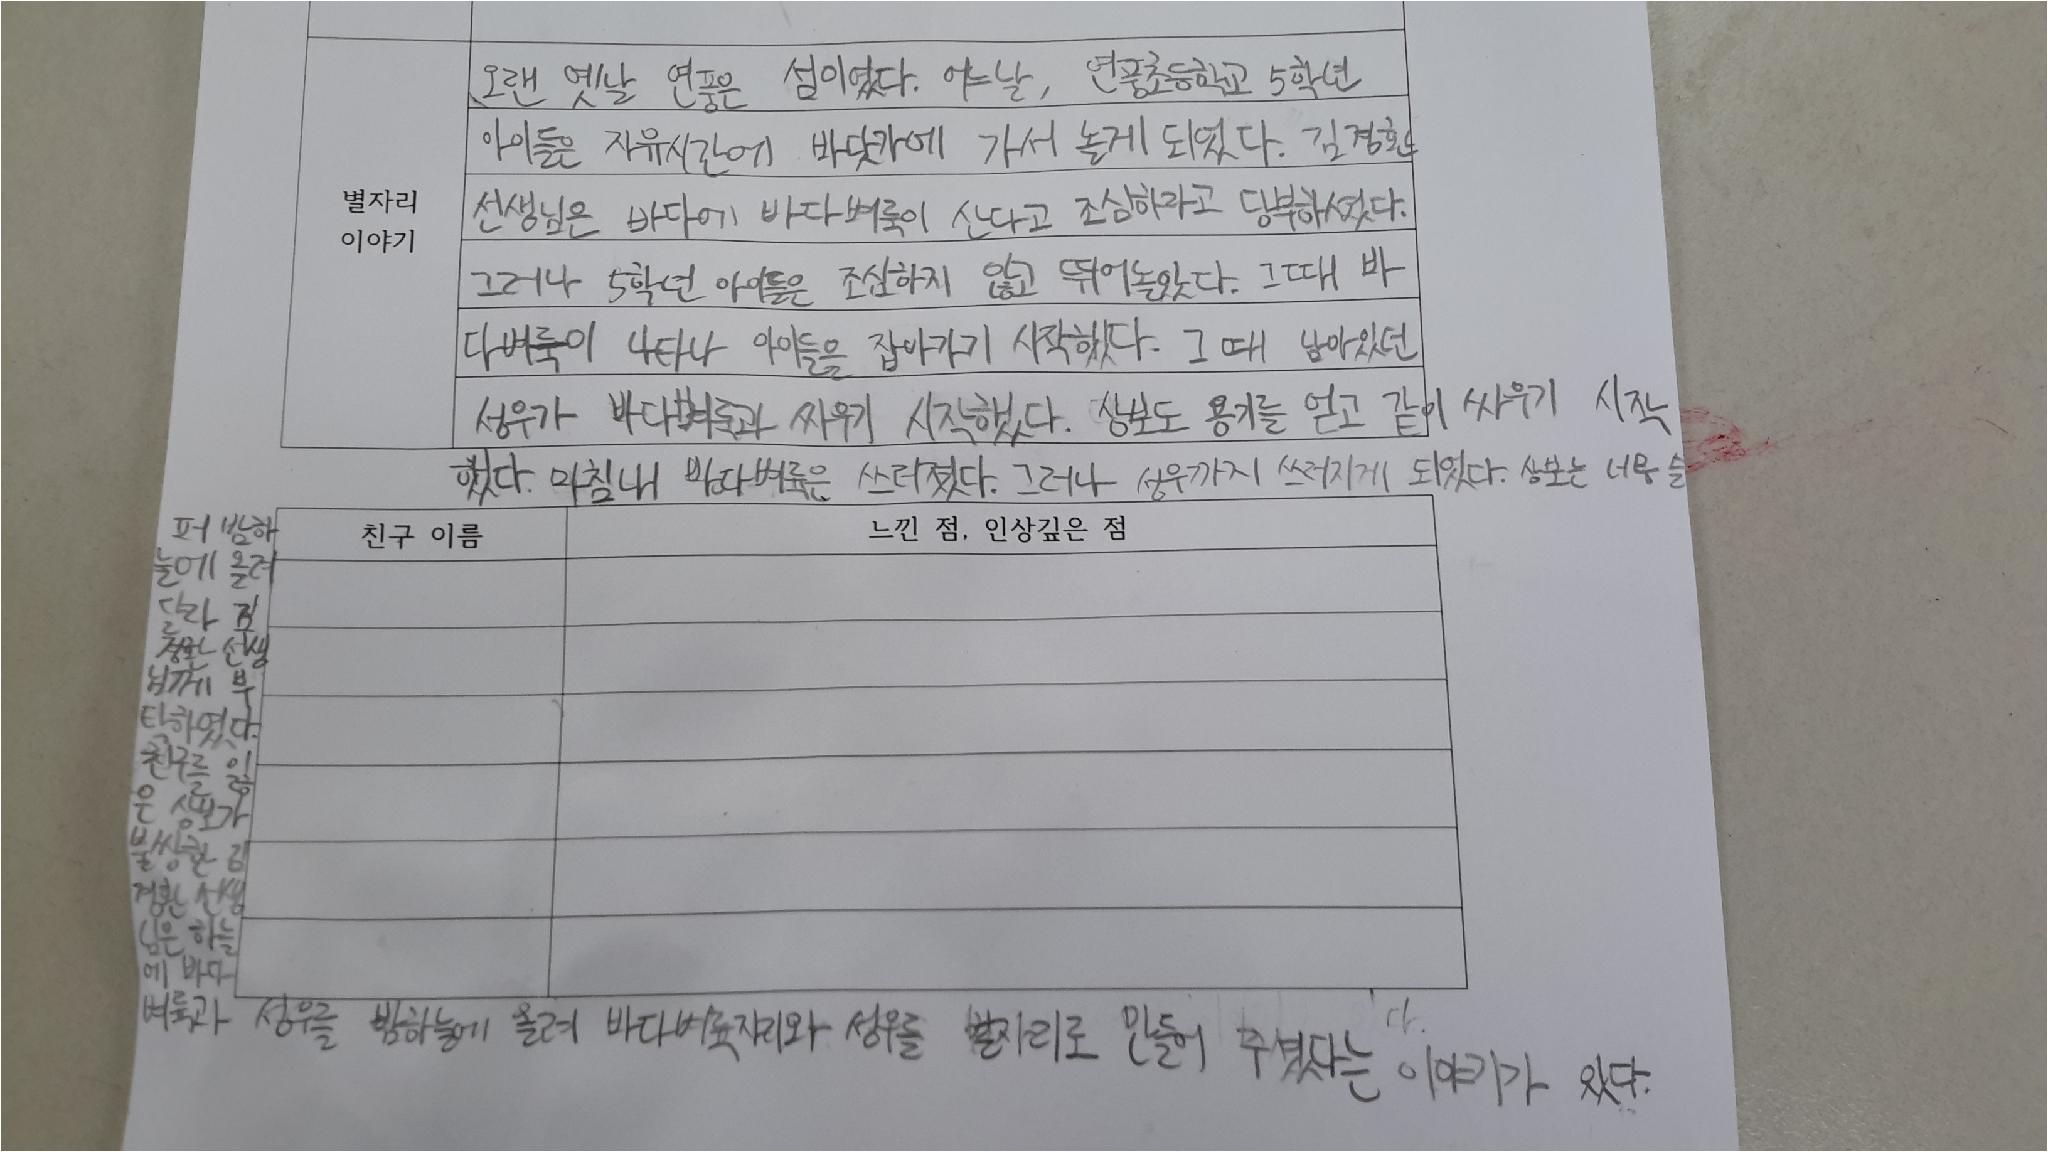 별자리
이야기
오랜 옛날 연풍은 섬이였다. 어느날, 연풍초등학교 5학년
아이들은 자유시간에 바닷가에 가서 놀게 되었다. 김경환
선생님은 바다에 바다벼룩이 산다고 조심하라고 당부하셨다.
그러나 5학년 아이들은 조심하지 않고 뛰어놀았다. 그때 바
다벼룩이 나타나 아이들을 잡아가기 시작했다. 그 때 남아있던
성우가 바다벼룩과 싸우기 시작했다. 상보도 용기를 얻고 같이 싸우기 시작
했다. 마침내 바다벼룩은 쓰러졌다. 그러나 성우까지 쓰러지게 되었다. 상보는 너무 슬
퍼 밤하
늘에 올려
달라 김
경환 선생
님께 부
탁하였다.
친구를 잃
은 상보가
불쌍한 김
경환 선생
님은 하늘
에 바다
벼룩과 성우를 밤하늘에 올려 바다벼룩자리와 성우를 별자리로 만들어 주셨다는 이야기가 있다.
다.
친구 이름
느낀 점, 인상깊은 점